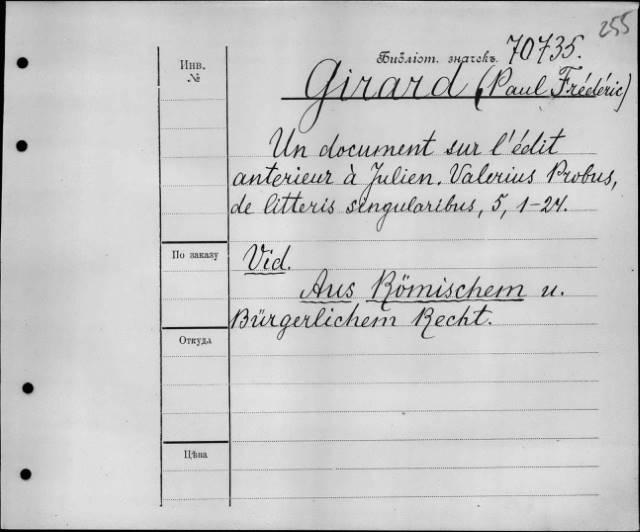 255
Инв. №
Библіот. значекъ. 70735.
Girard (Paul Frédéric)
Un document sur l'édit
anterieur à Julien. Valerius Probus,
de litteris singularibus, 5, 1-24.
По заказу
Vid.
Aus Römischem u.
Bürgerlichem Recht.
Откуда
Цѣна